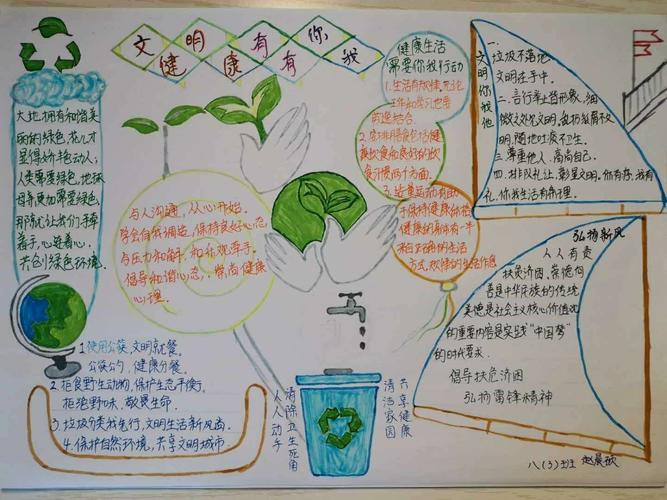 文明有你,
健康有我
大地拥有和谐美
丽的绿色,花儿才
显得娇艳动人;
人类需要绿色,地球
母亲更加需要绿色,
那就让我们手牵
着手,心连着心,
共创绿色环境.
与人沟通,从心开始.
学会自我调适,保持良好心态
与压力和解,和乐观牵手.
倡导和谐心态,崇尚健康
心理.
健康生活
需要你我行动
1.生活有规律,无论
工作和学习也需
劳逸结合.
2.安排膳食包括健
康饮食和良好的饮
食习惯两个方面.
3.适量运动有助
于保持健康
身体有一半
方式,
文明你我他
一.垃圾不落地
文明在手中.
二.言行举止皆形象,细
微之处见文明,乱扔乱
明,随地吐痰不卫生.
三.尊重他人,高尚自己.
四.排队礼让,彰显文明,你有序,我有
礼,你我生活有条理.
弘扬新风
人人有责
扶危济困,崇德向
善是中华民族的传统
美德是社会主义核心价值观
的重要内容是实践"中国梦"
的时代要求.
倡导扶危济困
弘扬雷锋精神
1.使用公筷,文明就餐.
公筷公勺,健康分餐.
2.拒食野生动物,保护生态平衡.
拒绝野味,敬畏生命.
3.垃圾分类我先行,文明生活新风尚.
4.保护自然环境,共享文明城市.
人人动手
清除卫生死角
清洁家园
共享健康
八(3)班 赵晨